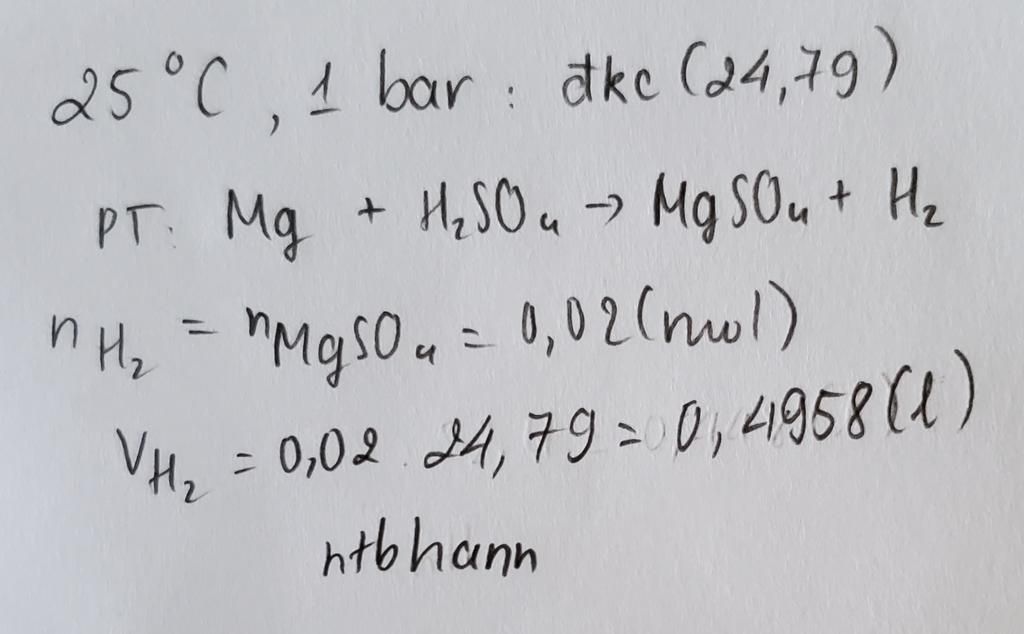 25°C, 1 bar : đkc (24,79)
PT: Mg + H₂SO₄ → MgSO₄ + H₂
nH₂ = nMgSO₄ = 0,02 (mol)
VH₂ = 0,02 . 24,79 = 0,4958 (l)
ntbhann